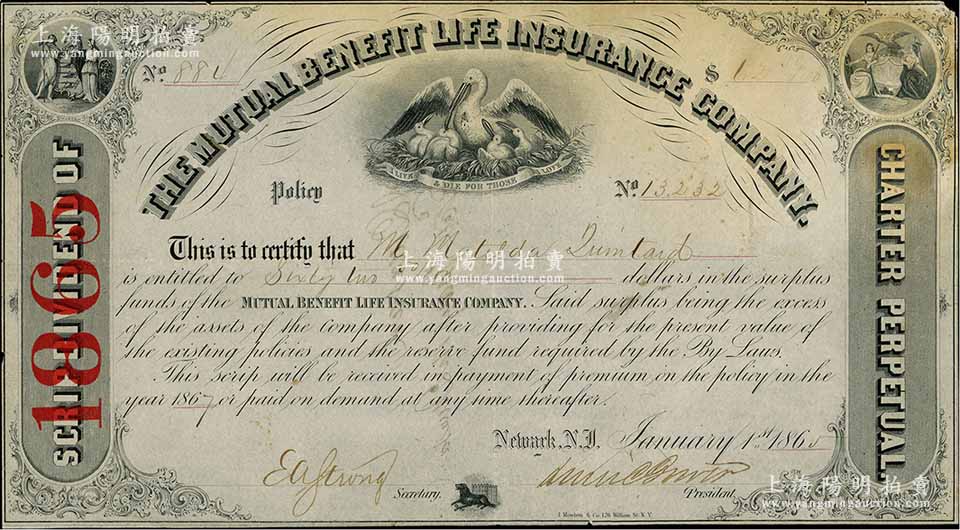 THE MUTUAL BENEFIT LIFE INSURANCE COMPANY.
No
$
I LIVE & DIE FOR THOSE I LOVE
Policy No. 13,232
This is to certify that Matilda Quintard
is entitled to Sixty two dollars in the surplus
funds of the MUTUAL BENEFIT LIFE INSURANCE COMPANY. Said surplus being the excess
of the assets of the company after providing for the present value of
the existing policies and the reserve fund required by the By Laws.
This scrip will be received in payment of premium on the policy in the
year 1867 or paid on demand at any time thereafter.
Newark, N.J. January 1st 1865
EA Strong Secretary. President.
SCRIP DIVIDEND OF
1865
CHARTER PERPETUAL
上海陽明拍賣
www.yangmingauction.com
上海陽明拍賣
www.yangmingauction.com
上海陽明拍賣
www.yangmingauction.com
上海陽明拍賣
www.yangmingauction.com
上海陽明拍賣
www.yangmingauction.com